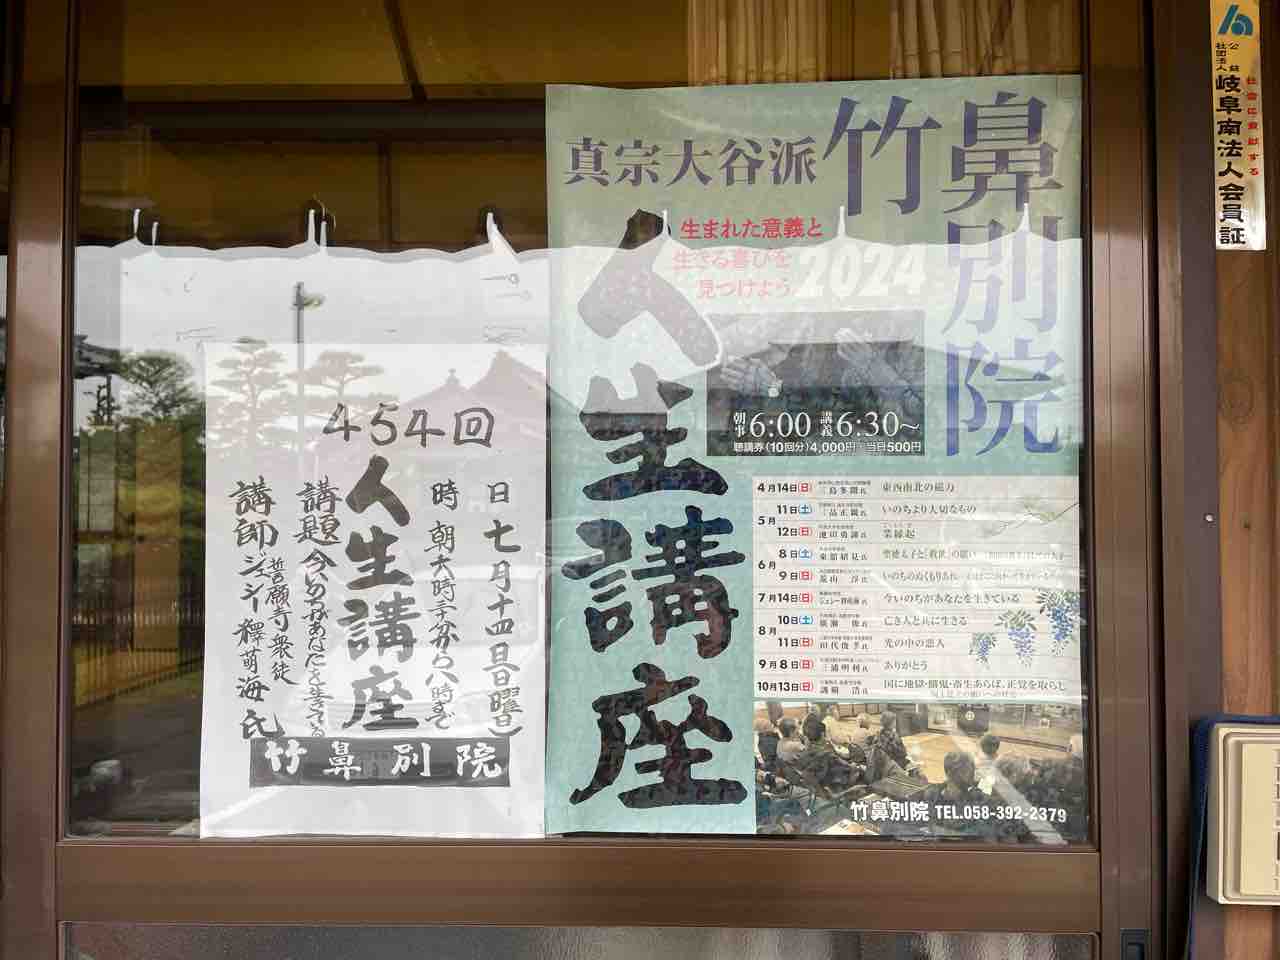 公益
社団法人
岐阜南法人会員証
社会に貢献する
竹鼻別院
真宗大谷派
生まれた意義と
生きる喜びを
見つけよう
2024
人生講座
朝事6:00 講義6:30~
聴講券(10回分)4,000円 当日500円
4月14日(日) 三島多聞氏 東西南北の磁力
5月 11日(土) 三品正親氏 いのちより大切なもの
12日(日) 池田勇諦氏 業縁起
6月 8日(土) 東舘紹見氏
9日(日)
7月14日(日) 今いのちがあなたを生きている
8月 10日(土) 廣瀬 俊氏 亡き人と共に生きる
11日(日) 田代俊孝氏 光の中の悲人
9月8日(日) 三浦明利氏 ありがとう
10月13日(日) 譲 浩氏 国に地獄・餓鬼・畜生あらば、正覚を取らじ
竹鼻別院 TEL.058-392-2379
454回
人生講座
日 七月十四日(日曜日)
時 朝六時三十分から八時まで
講題 今いのちがあなたを生きてる
講師 誓願寺衆徒
ジェシー釋萌海氏
竹鼻別院